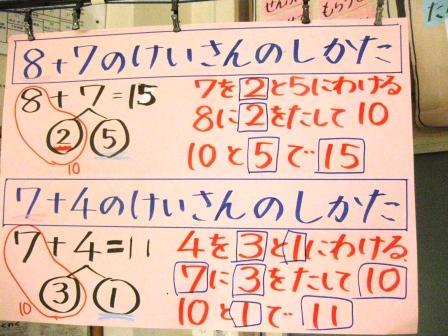 せんせ
もらう
た
8+7のけいさんのしかた
8+7=15
2 5
10
7を2と5にわける
8に2をたして10
10と5で15
7+4のけいさんのしかた
7+4=11
3 1
10
4を3と1にわける
7に3をたして10
10と1で11